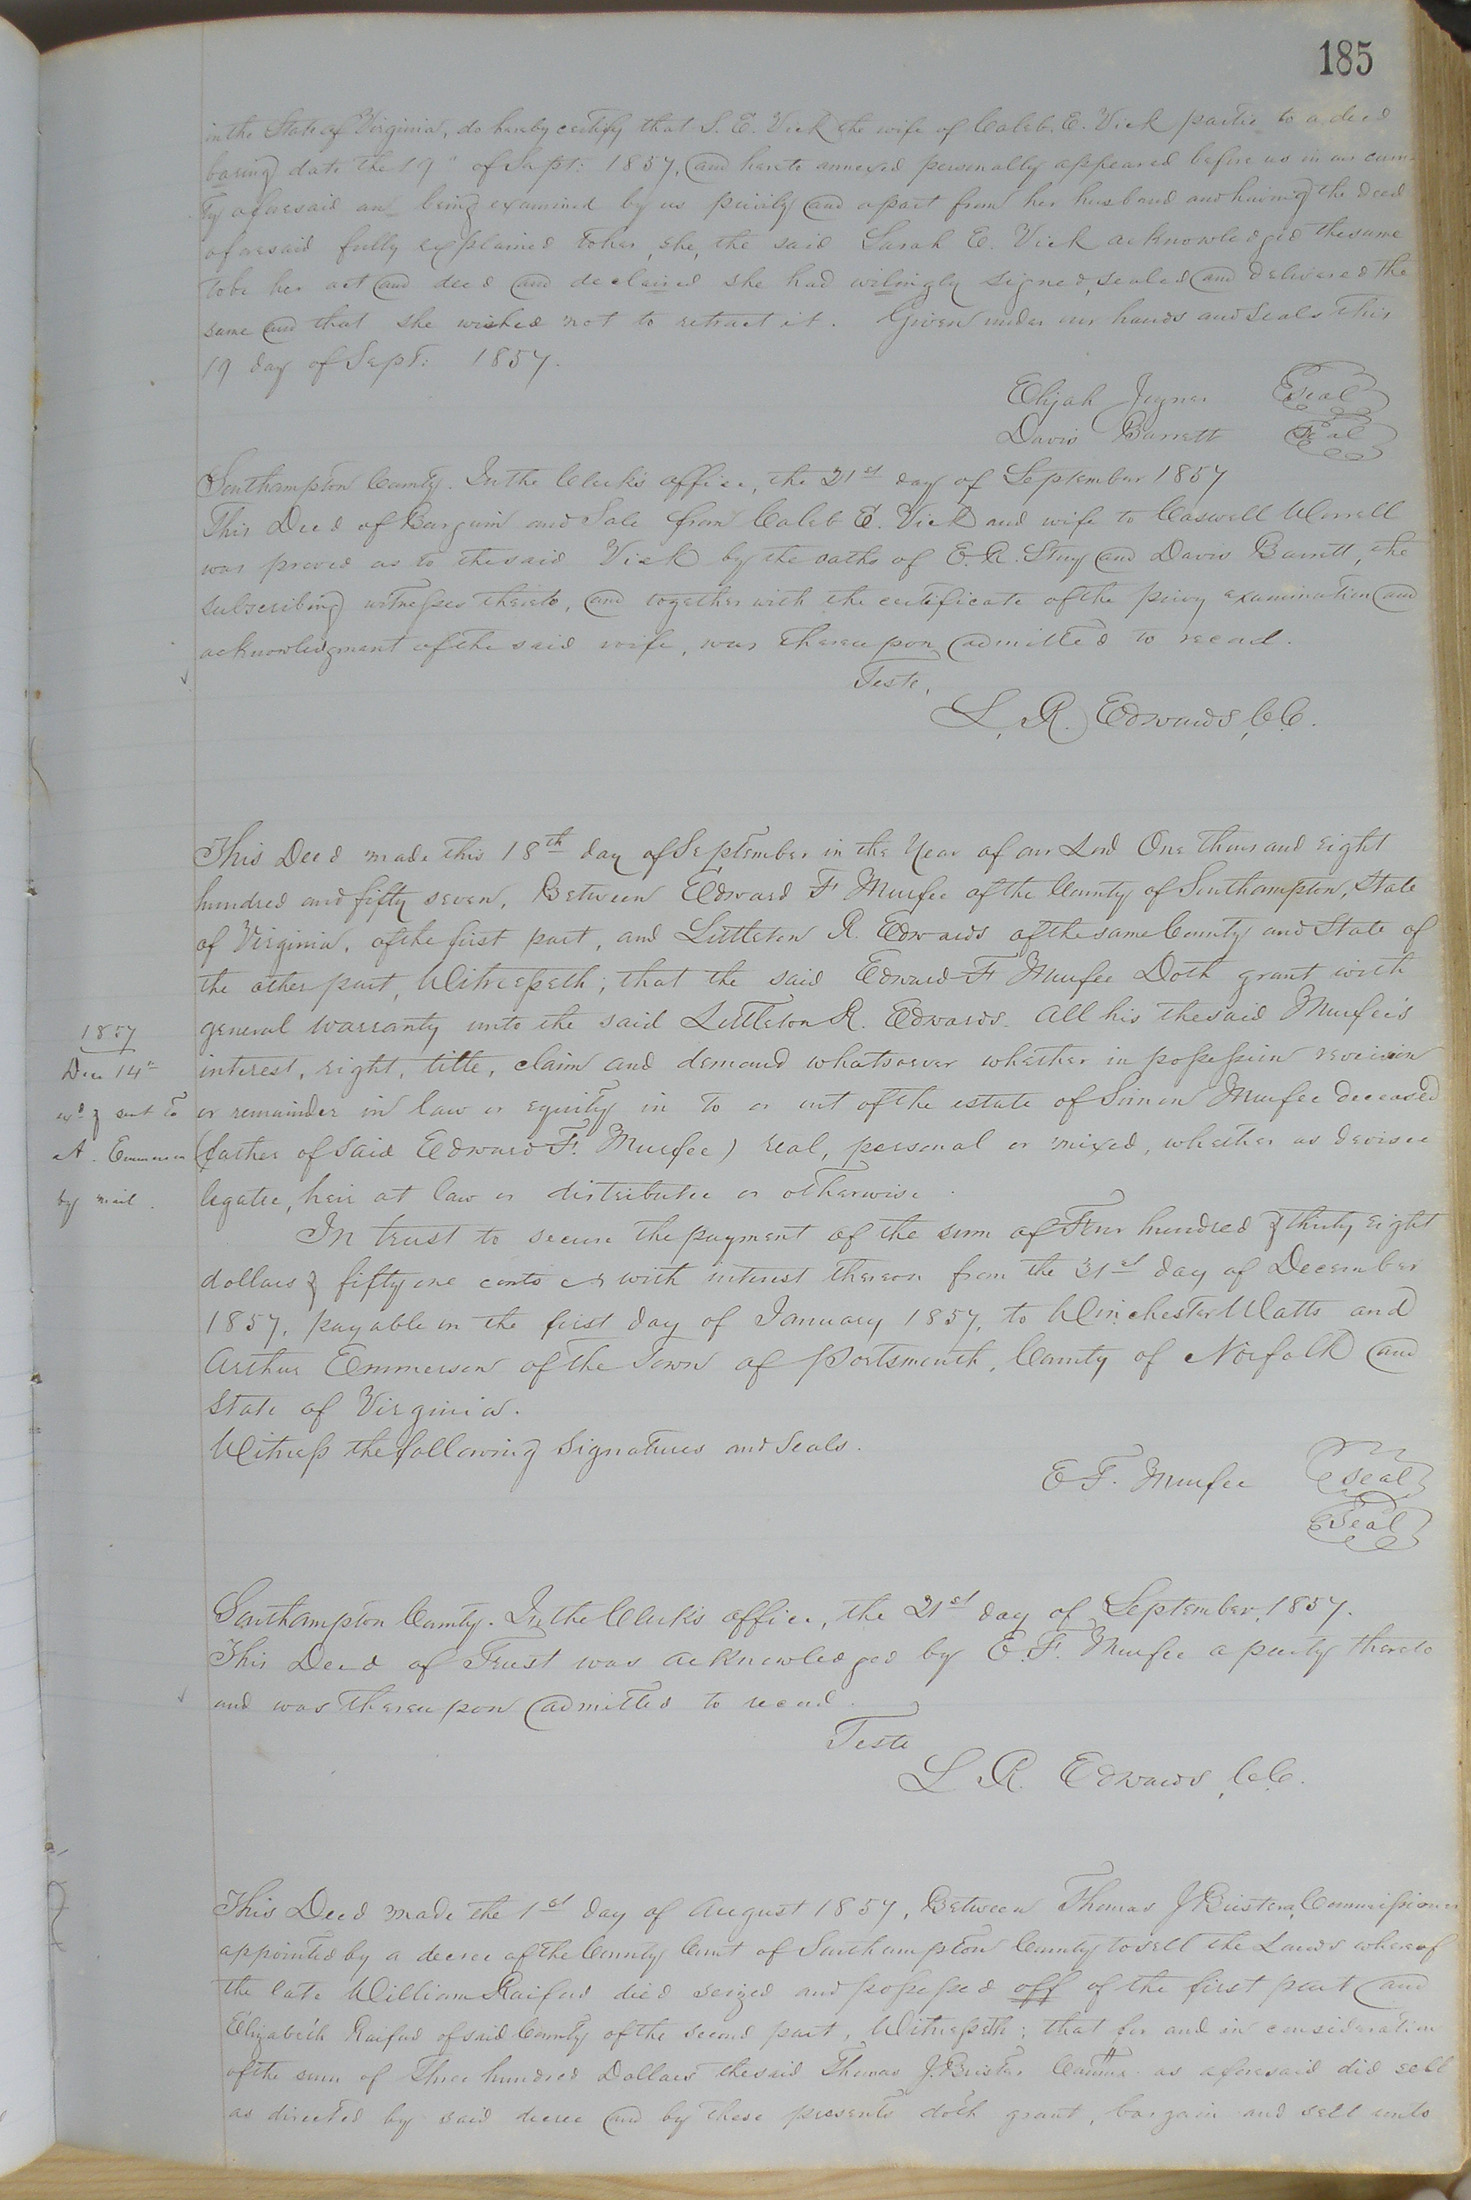 185
in the State of Virginia, do hereby certify that S. E. Vick the wife of Caleb E. Vick partie to a deed
baring date the 19" of Sept: 1857, and hereto annexed personally appeared before us in our coun-
ty aforesaid an being examined by us privily and apart from her husband and having the deed
aforesaid fully explained to her, she, the said Sarah E. Vick acknowledged the same
to be her act and deed and declaired she had wilingly signed, sealed and delivered the
same and that she wished not to retract it. Given under our hands and seals this
19 day of Sept: 1857.
Elijah Joyner Seal
Davis Barrett Seal
Southampton County. In the Clerk's office, the 21st day of September 1857
This Deed of Bargain and Sale from Caleb E. Vick and wife to Caswell Worrell
was proved as to the said Vick by the oaths of E. R. and Davis Barrett, the
subscribing witnesses thereto, and together with the certificate of the privy examination and
acknowledgment of the said wife, was thereupon admitted to record.
Teste,
L. R. Edwards, C.C.
This Deed made this 18th day of September in the Year of our Lord One thousand eight
hundred and fifty seven, Between Edward F Murfee of the County of Southampton, State
of Virginia, of the first part, and Littleton R. Edwards of the same County and State of
the other part, Witnesseth; that the said Edward F Murfee Doth grant with
general warranty unto the said Littleton R. Edwards. All his the said Murfee's
interest, right, title, claim and demand whatsoever whether in possession revision
or remainder in law or equity in to or out of the estate of Simon Murfee deceased
(father of said Edward F. Murfee) real, personal or mixed, whether as devisee
legatee, heir at law or distributee or otherwise.
1857
Dec 14"
exd & sent to
A. Emmerson
by mail.
In trust to secure the payment of the sum of Four hundred & thirty eight
dollars & fifty one cents with interest thereon from the 31st day of December
1857, payable on the first day of January 1857, to Winchester Watts and
Arthur Emmerson of the Town of Portsmouth, County of Norfolk and
State of Virginia.
Witness the following signatures and seals.
E F. Murfee Seal
Seal
Southampton County. In the Clerk's office, the 21st day of September, 1857.
This Deed of Trust was acknowledged by E. F. Murfee a party thereto
and was thereupon admitted to record.
Teste
L R. Edwards, C.C.
This Deed made the 1st day of August 1857, Between Thomas J. Commissioner
appointed by a decree of the County Court of Southampton County to sell the Lands whereof
the late William Raiford died seized and possessed off of the first part and
Elizabeth Raiford of said County of the second part, Witnesseth; that for and in consideration
of the sum of three hundred Dollars the said Thomas J. as aforesaid did sell
as directed by said decree and by these presents doth grant, bargain and sell unto